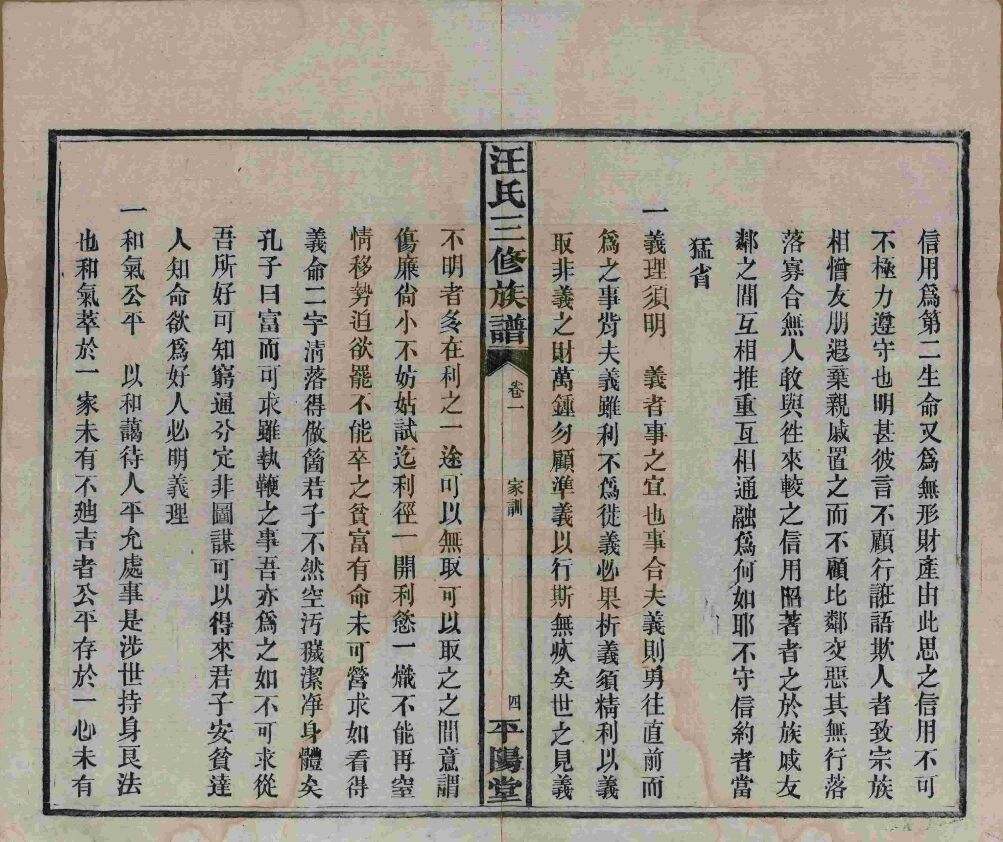 信用爲第二生命又爲無形財產由此思之信用不可
不極力遵守也明甚彼言不顧行誑語欺人者致宗族
相憎友朋遐棄親戚置之而不顧比鄰交惡其無行落
落寡合無人敢與徃來較之信用昭著者之於族戚友
鄰之間互相推重互相通融爲何如耶不守信約者當
猛省
一義理須明　義者事之宜也事合夫義則勇往直前而
爲之事背夫義雖利不爲徙義必果析義須精利以義
取非義之財萬鍾勿顧準義以行斯無疚矣世之見義
汪氏三修族譜
卷一
家訓
四
平陽堂
不明者多在利之一途可以無取可以取之之間意謂
傷廉尙小不妨姑試迄利徑一開利慾一熾不能再窒
情移勢迫欲罷不能卒之貧富有命未可營求如看得
義命二字淸落得做箇君子不然空汚穢潔净身體矣
孔子曰富而可求雖執鞭之事吾亦爲之如不可求從
吾所好可知窮通分定非圖謀可以得來君子安貧達
人知命欲爲好人必明義理
一和氣公平　以和藹待人平允處事是涉世持身良法
也和氣萃於一家未有不廸吉者公平存於一心未有